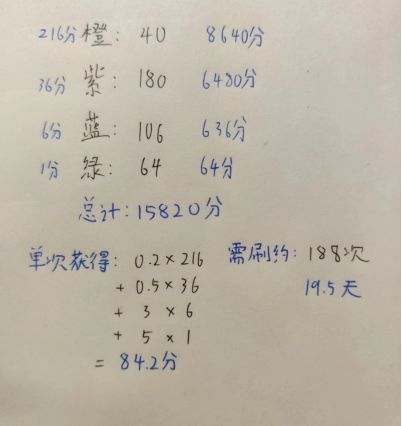 216分 橙: 40 8640分
36分 紫: 180 6480分
6分 蓝: 106 636分
1分 绿: 64 64分
总计: 15820分
单次获得: 0.2×216 需刷约: 188次
+ 0.5×36 19.5天
+ 3 × 6
+ 5 × 1
= 84.2分